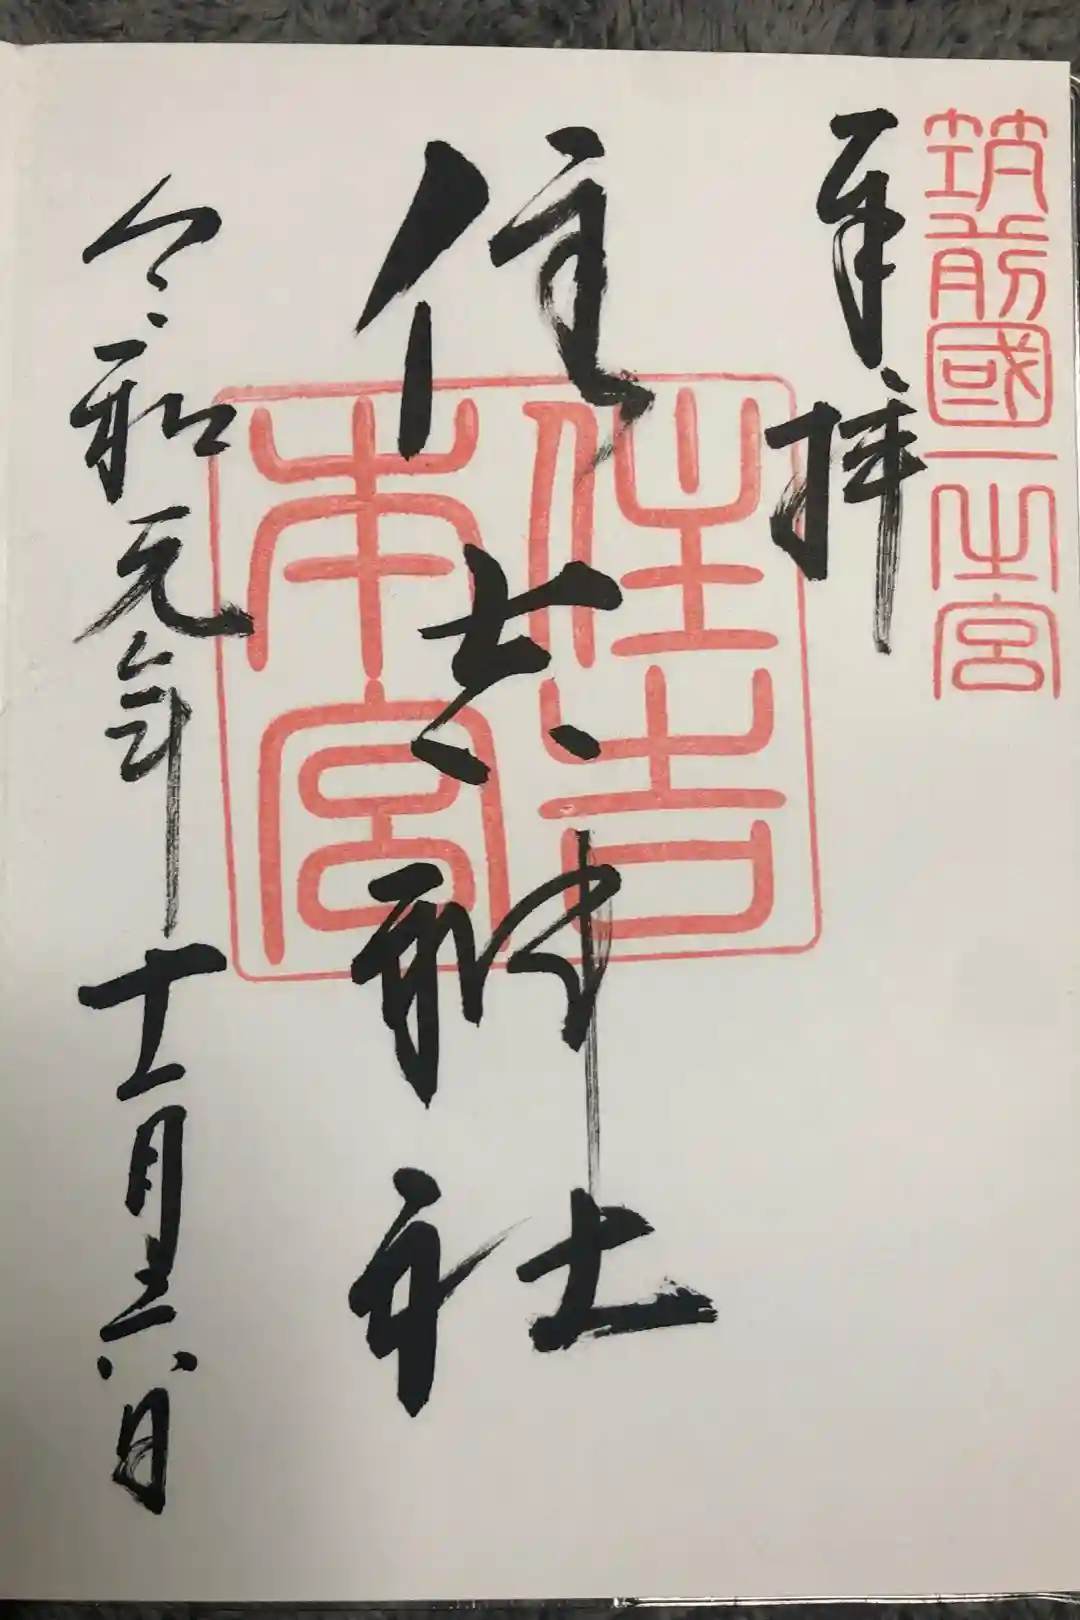 筑前國一之宮
奉拝
住吉神社
住吉
本宮
令和元年十一月 日